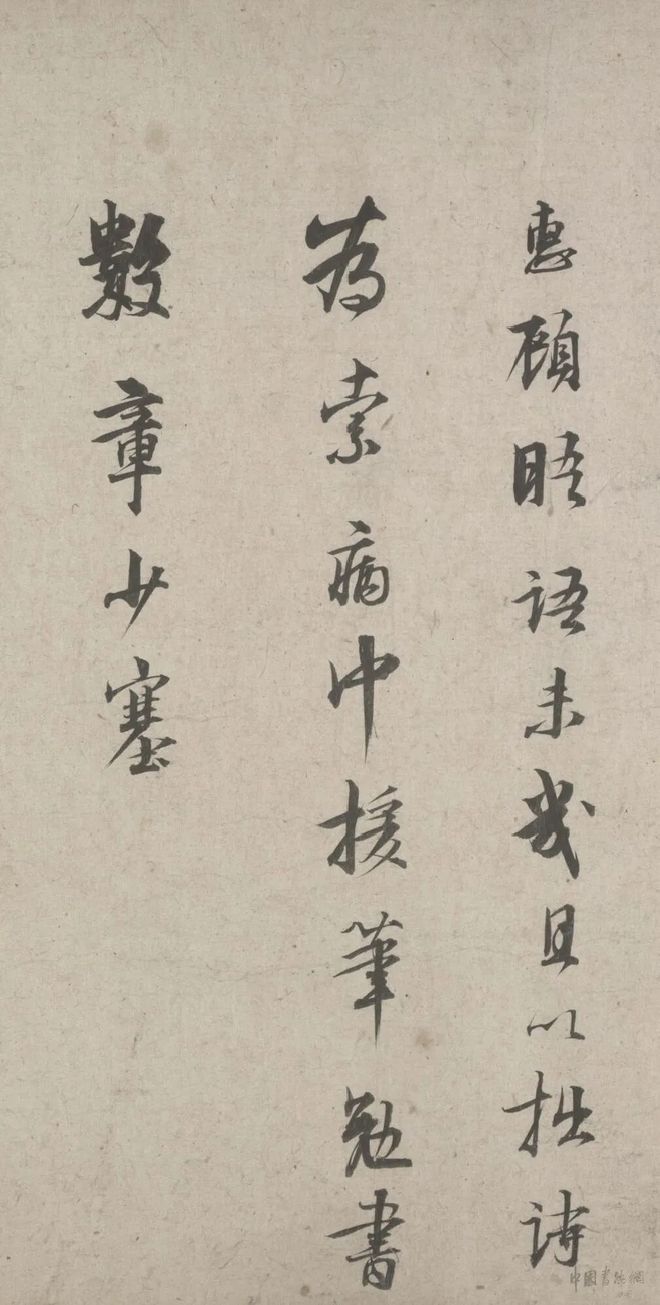 惠顧晤語未幾且以拙詩
為索病中援筆勉書
數章少塞
中國書法網